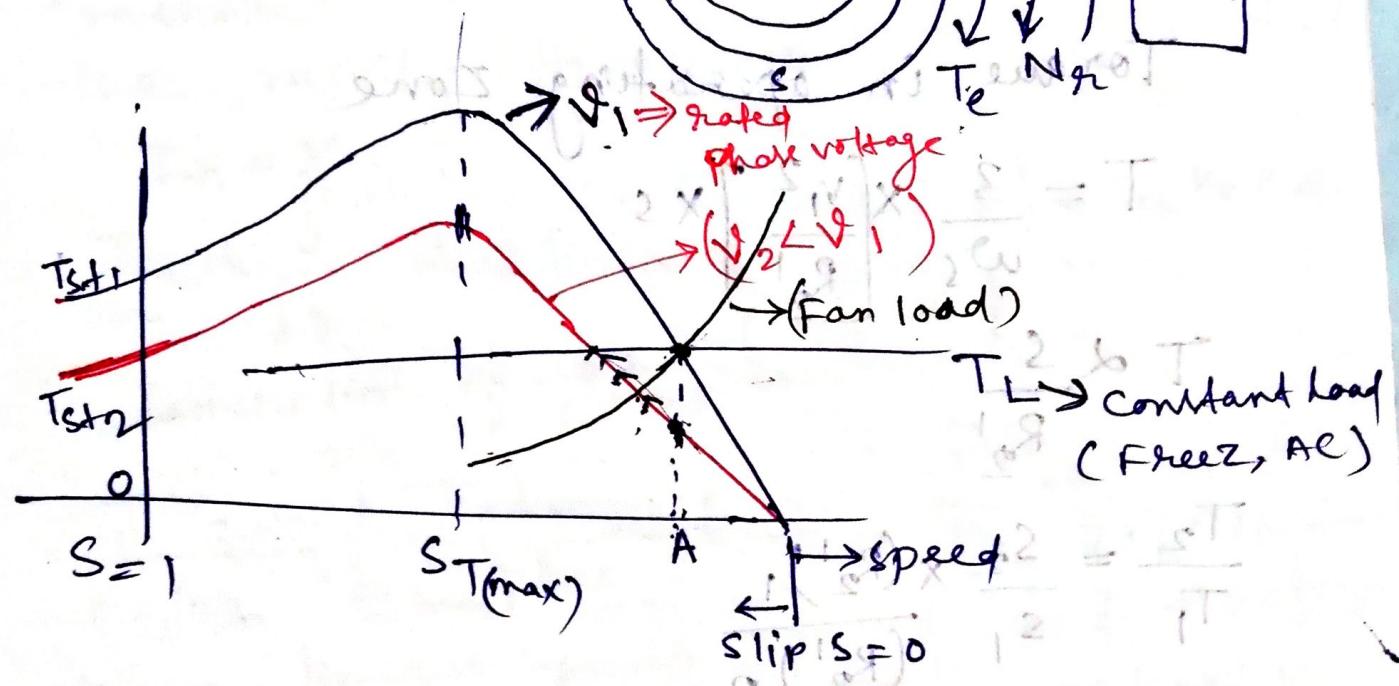 S
Te Nr
V1 ⇒ rated
phase voltage
(V2 < V1)
Tst1
→ (Fan load)
TL → Constant Load
(Freez, AC)
Tst2
0
S=1
ST(max)
A
→ speed
←
slip S=0